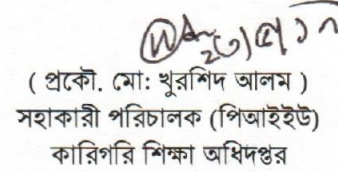 ( প্রকৌ. মো: খুরশিদ আলম )
সহাকারী পরিচালক (পিআইইউ)
কারিগরি শিক্ষা অধিদপ্তর